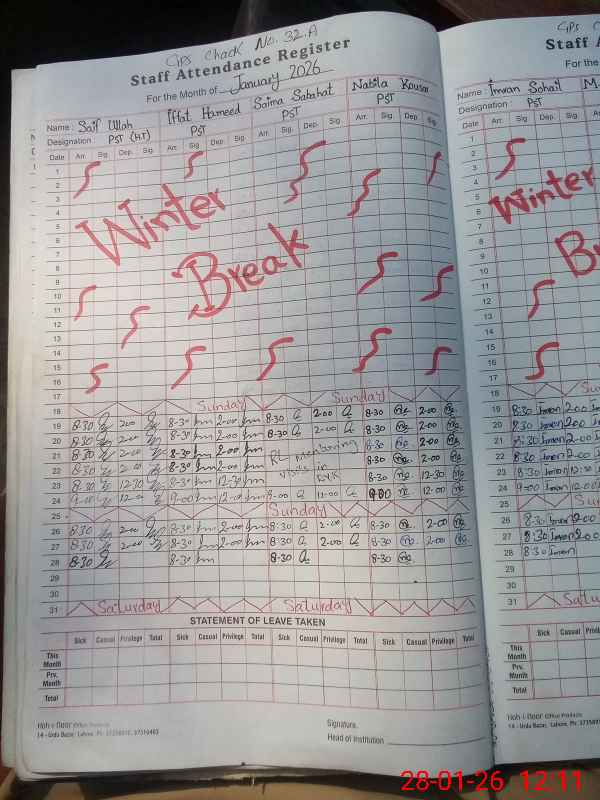 GPS Chack No. 32.A
Staff Attendance Register
For the Month of January 2026
Name : Saif Ullah Iffat Hameed Saima Sabahat Nabila Kousar
Designation : PST (H.T) PST PST PST
Date Arr. Sig. Dep. Sig. Arr. Sig. Dep. Sig. Arr. Sig. Dep. Sig. Arr. Sig. Dep. Sig.
1
2
3
4
5
6
7
8
9
10
11
12
13
14
15
16
17
Winter
Break
18 Sunday Sunday
19 8-30 2-00 8-30 2-00 8-30 2-00 8-30 2-00
20 8-30 2-00 8-30 2-00 8-30 2-00 8-30 2-00
21 8-30 2-00 8-30 2-00 8-30 2-00
22 8-30 2-00 8-30 2-00 8-30 2-00
23 8-30 12-30 8-30 12-30 8-30 12-30
24 9-00 12-00 9-00 12-00 9-00 12-00 9-00 12-00
25 Sunday
26 8-30 2-00 8-30 2-00 8-30 2-00 8-30 2-00
27 8-30 2-00 8-30 2-00 8-30 2-00 8-30 2-00
28 8-30 8-30 8-30 8-30
29
30
31 Saturday Saturday
STATEMENT OF LEAVE TAKEN
Sick Casual Privilege Total Sick Casual Privilege Total Sick Casual Privilege Total Sick Casual Privilege Total
This Month
Prv. Month
Total
Roh-i-Noor Office Products
14 - Urdu Bazar, Lahore.
Signature.
Head of Institution
GPS C
Staff A
For the
Name : Imran Sohail M.
Designation : PST
Date Arr. Sig. Dep. Sig. Arr.
1
2
3
4
5
6
7
8
9
10
11
12
13
14
15
16
17
Winter
B
18 Sund
19 8:30 Imran 2:00
20 8:30 Imran 2:00
21 8:30 Imran 2:00
22 8:30 Imran 2:00
23 8:30 Imran 12:30
24 9:00 Imran 12:00
25
26 8:30 Imran 2:00
27 8:30 Imran 2:00
28 8:30 Imran
29
30
31 Satu
STA
Sick Casual Privilege Total Sick
This Month
Prv. Month
Total
Roh-i-Noor Office Products
14 - Urdu Bazar, Lahore.
28-01-26 12:11